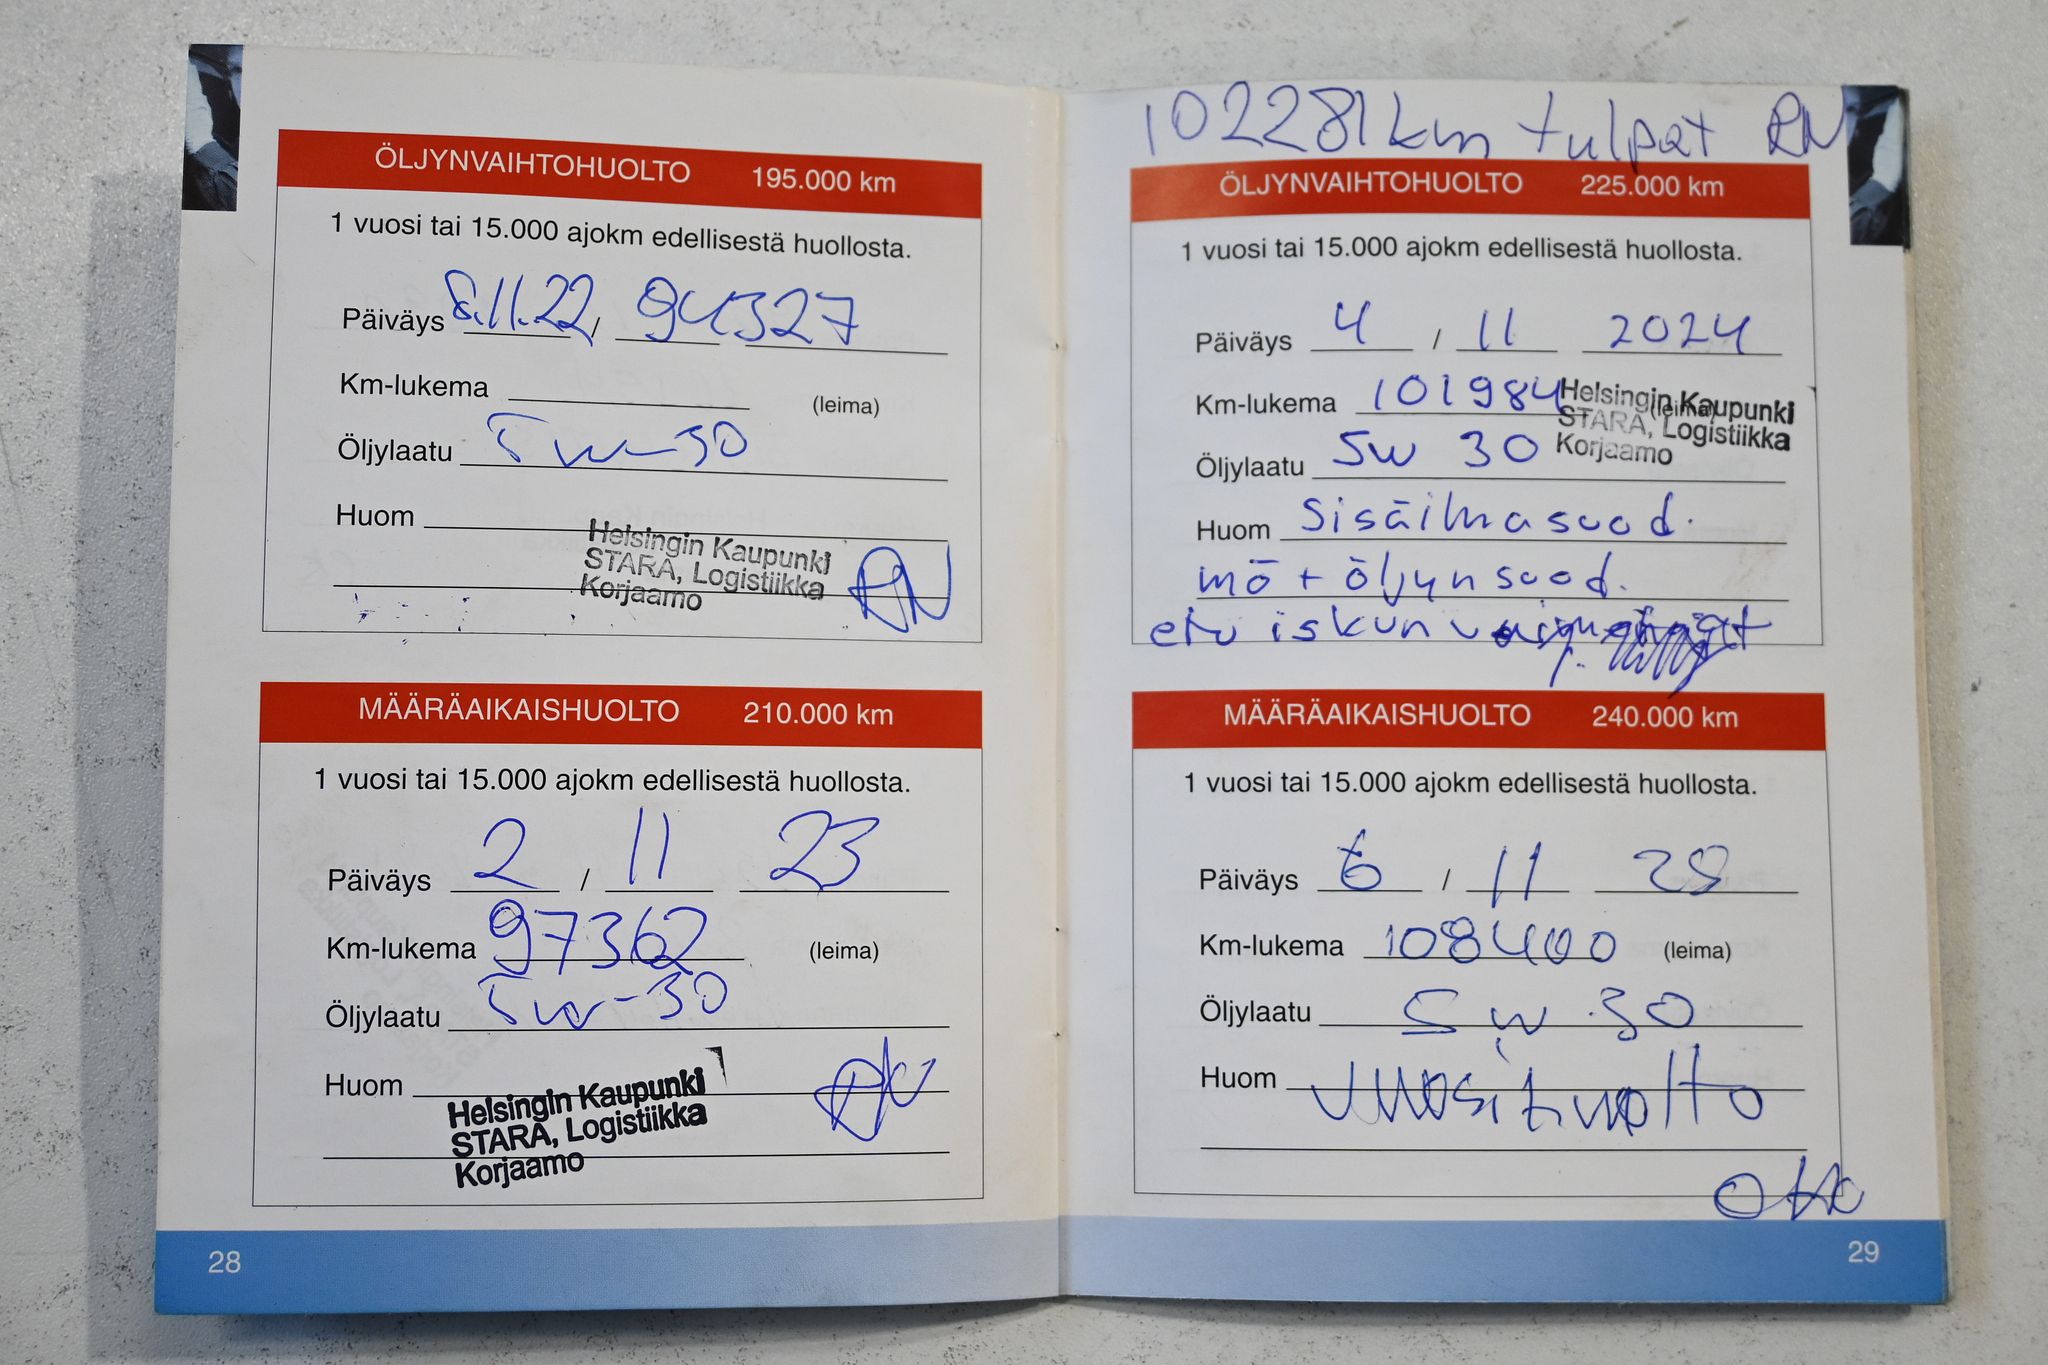 ÖLJYNVAIHTOHUOLTO 195.000 km
1 vuosi tai 15.000 ajokm edellisestä huollosta.
Päiväys 8.11.22 / 94327
Km-lukema (leima)
Öljylaatu 5w-30
Huom
Helsingin Kaupunki
STARA, Logistiikka
Korjaamo
RN
MÄÄRÄAIKAISHUOLTO 210.000 km
1 vuosi tai 15.000 ajokm edellisestä huollosta.
Päiväys 2 / 11 23
Km-lukema 97362 (leima)
Öljylaatu 5w-30
Huom
Helsingin Kaupunki
STARA, Logistiikka
Korjaamo
RN
28
102281km tulpat RN
ÖLJYNVAIHTOHUOLTO 225.000 km
1 vuosi tai 15.000 ajokm edellisestä huollosta.
Päiväys 4 / 11 2024
Km-lukema 101984 (leima)
Helsingin Kaupunki
STARA, Logistiikka
Korjaamo
Öljylaatu 5w 30
Huom Sisäilmasuod.
mö + öljynsuod.
etu iskun
MÄÄRÄAIKAISHUOLTO 240.000 km
1 vuosi tai 15.000 ajokm edellisestä huollosta.
Päiväys 6 / 11
Km-lukema 108400 (leima)
Öljylaatu 5w 30
Huom Vuosihuolto
Otto
29